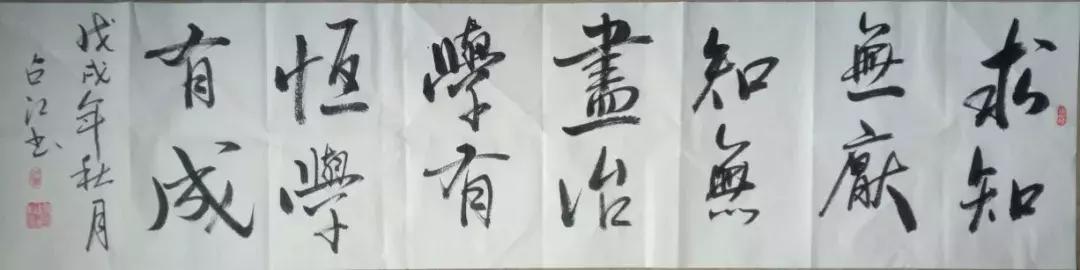 求知
無厭
知無
盡治
學有
恆學
有成
戊戌年秋月
占江书